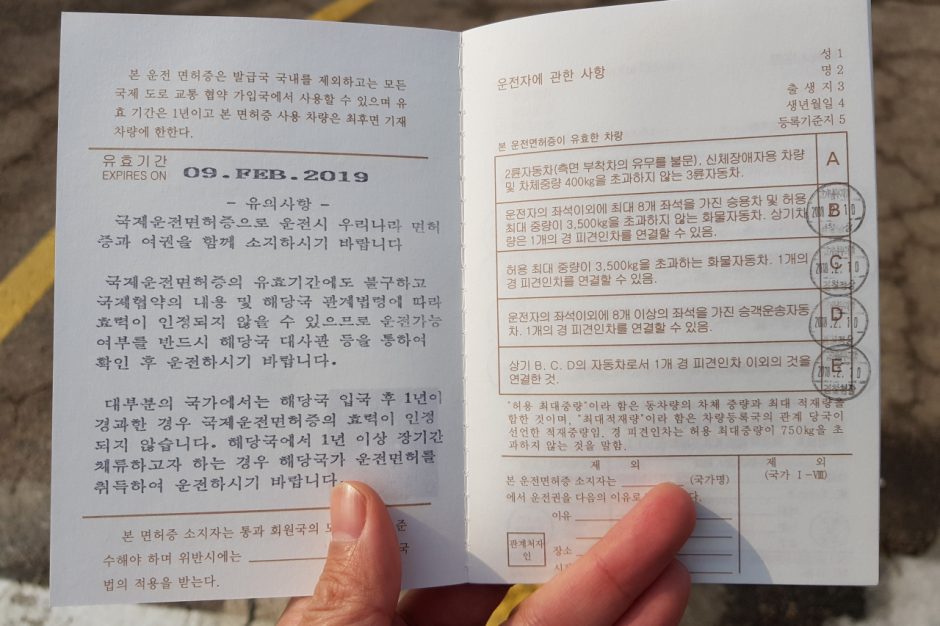 본 운전 면허증은 발급국 국내를 제외하고는 모든
국제 도로 교통 협약 가입국에서 사용할 수 있으며 유
효 기간은 1년이고 본 면허증 사용 차량은 최후면 기재
차량에 한한다.
유효기간
EXPIRES ON 09. FEB. 2019
- 유의사항 -
국제운전면허증으로 운전시 우리나라 면허
증과 여권을 함께 소지하시기 바랍니다
국제운전면허증의 유효기간에도 불구하고
국제협약의 내용 및 해당국 관계법령에 따라
효력이 인정되지 않을 수 있으므로 운전가능
여부를 반드시 해당국 대사관 등을 통하여
확인 후 운전하시기 바랍니다.
대부분의 국가에서는 해당국 입국 후 1년이
경과한 경우 국제운전면허증의 효력이 인정
되지 않습니다. 해당국에서 1년 이상 장기간
체류하고자 하는 경우 해당국가 운전면허를
취득하여 운전하시기 바랍니다.
본 면허증 소지자는 통과 회원국의 준
수해야 하며 위반시에는 국
법의 적용을 받는다.
운전자에 관한 사항
성 1
명 2
출 생 지 3
생년월일 4
등록기준지 5
본 운전면허증이 유효한 차량
2륜자동차(측면 부착차의 유무를 불문), 신체장애자용 차량
및 차체중량 400kg을 초과하지 않는 3륜자동차.
A
운전자의 좌석이외에 최대 8개 좌석을 가진 승용차 및 허용
최대 중량이 3,500kg을 초과하지 않는 화물자동차. 상기차
량은 1개의 경 피견인차를 연결할 수 있음.
B
허용 최대 중량이 3,500kg을 초과하는 화물자동차. 1개의
경 피견인차를 연결할 수 있음.
C
운전자의 좌석이외에 8개 이상의 좌석을 가진 승객운송자동
차. 1개의 경 피견인차를 연결할 수 있음.
D
상기 B. C. D의 자동차로서 1개 경 피견인차 이외의 것을
연결한 것.
E
"허용 최대중량"이라 함은 동차량의 차체 중량과 최대 적재량을
합한 것이며, "최대적재량"이라 함은 차량등록국의 관계 당국이
선언한 적재중량임. 경 피견인차는 허용 최대중량이 750kg을 초
과하지 않는 것을 말함.
제 외
본 운전면허증 소지자는 (국가명)
에서 운전권을 다음의 이유로 다.
이유
관계처자
인
장소
제 외
(국가 I-VIII)